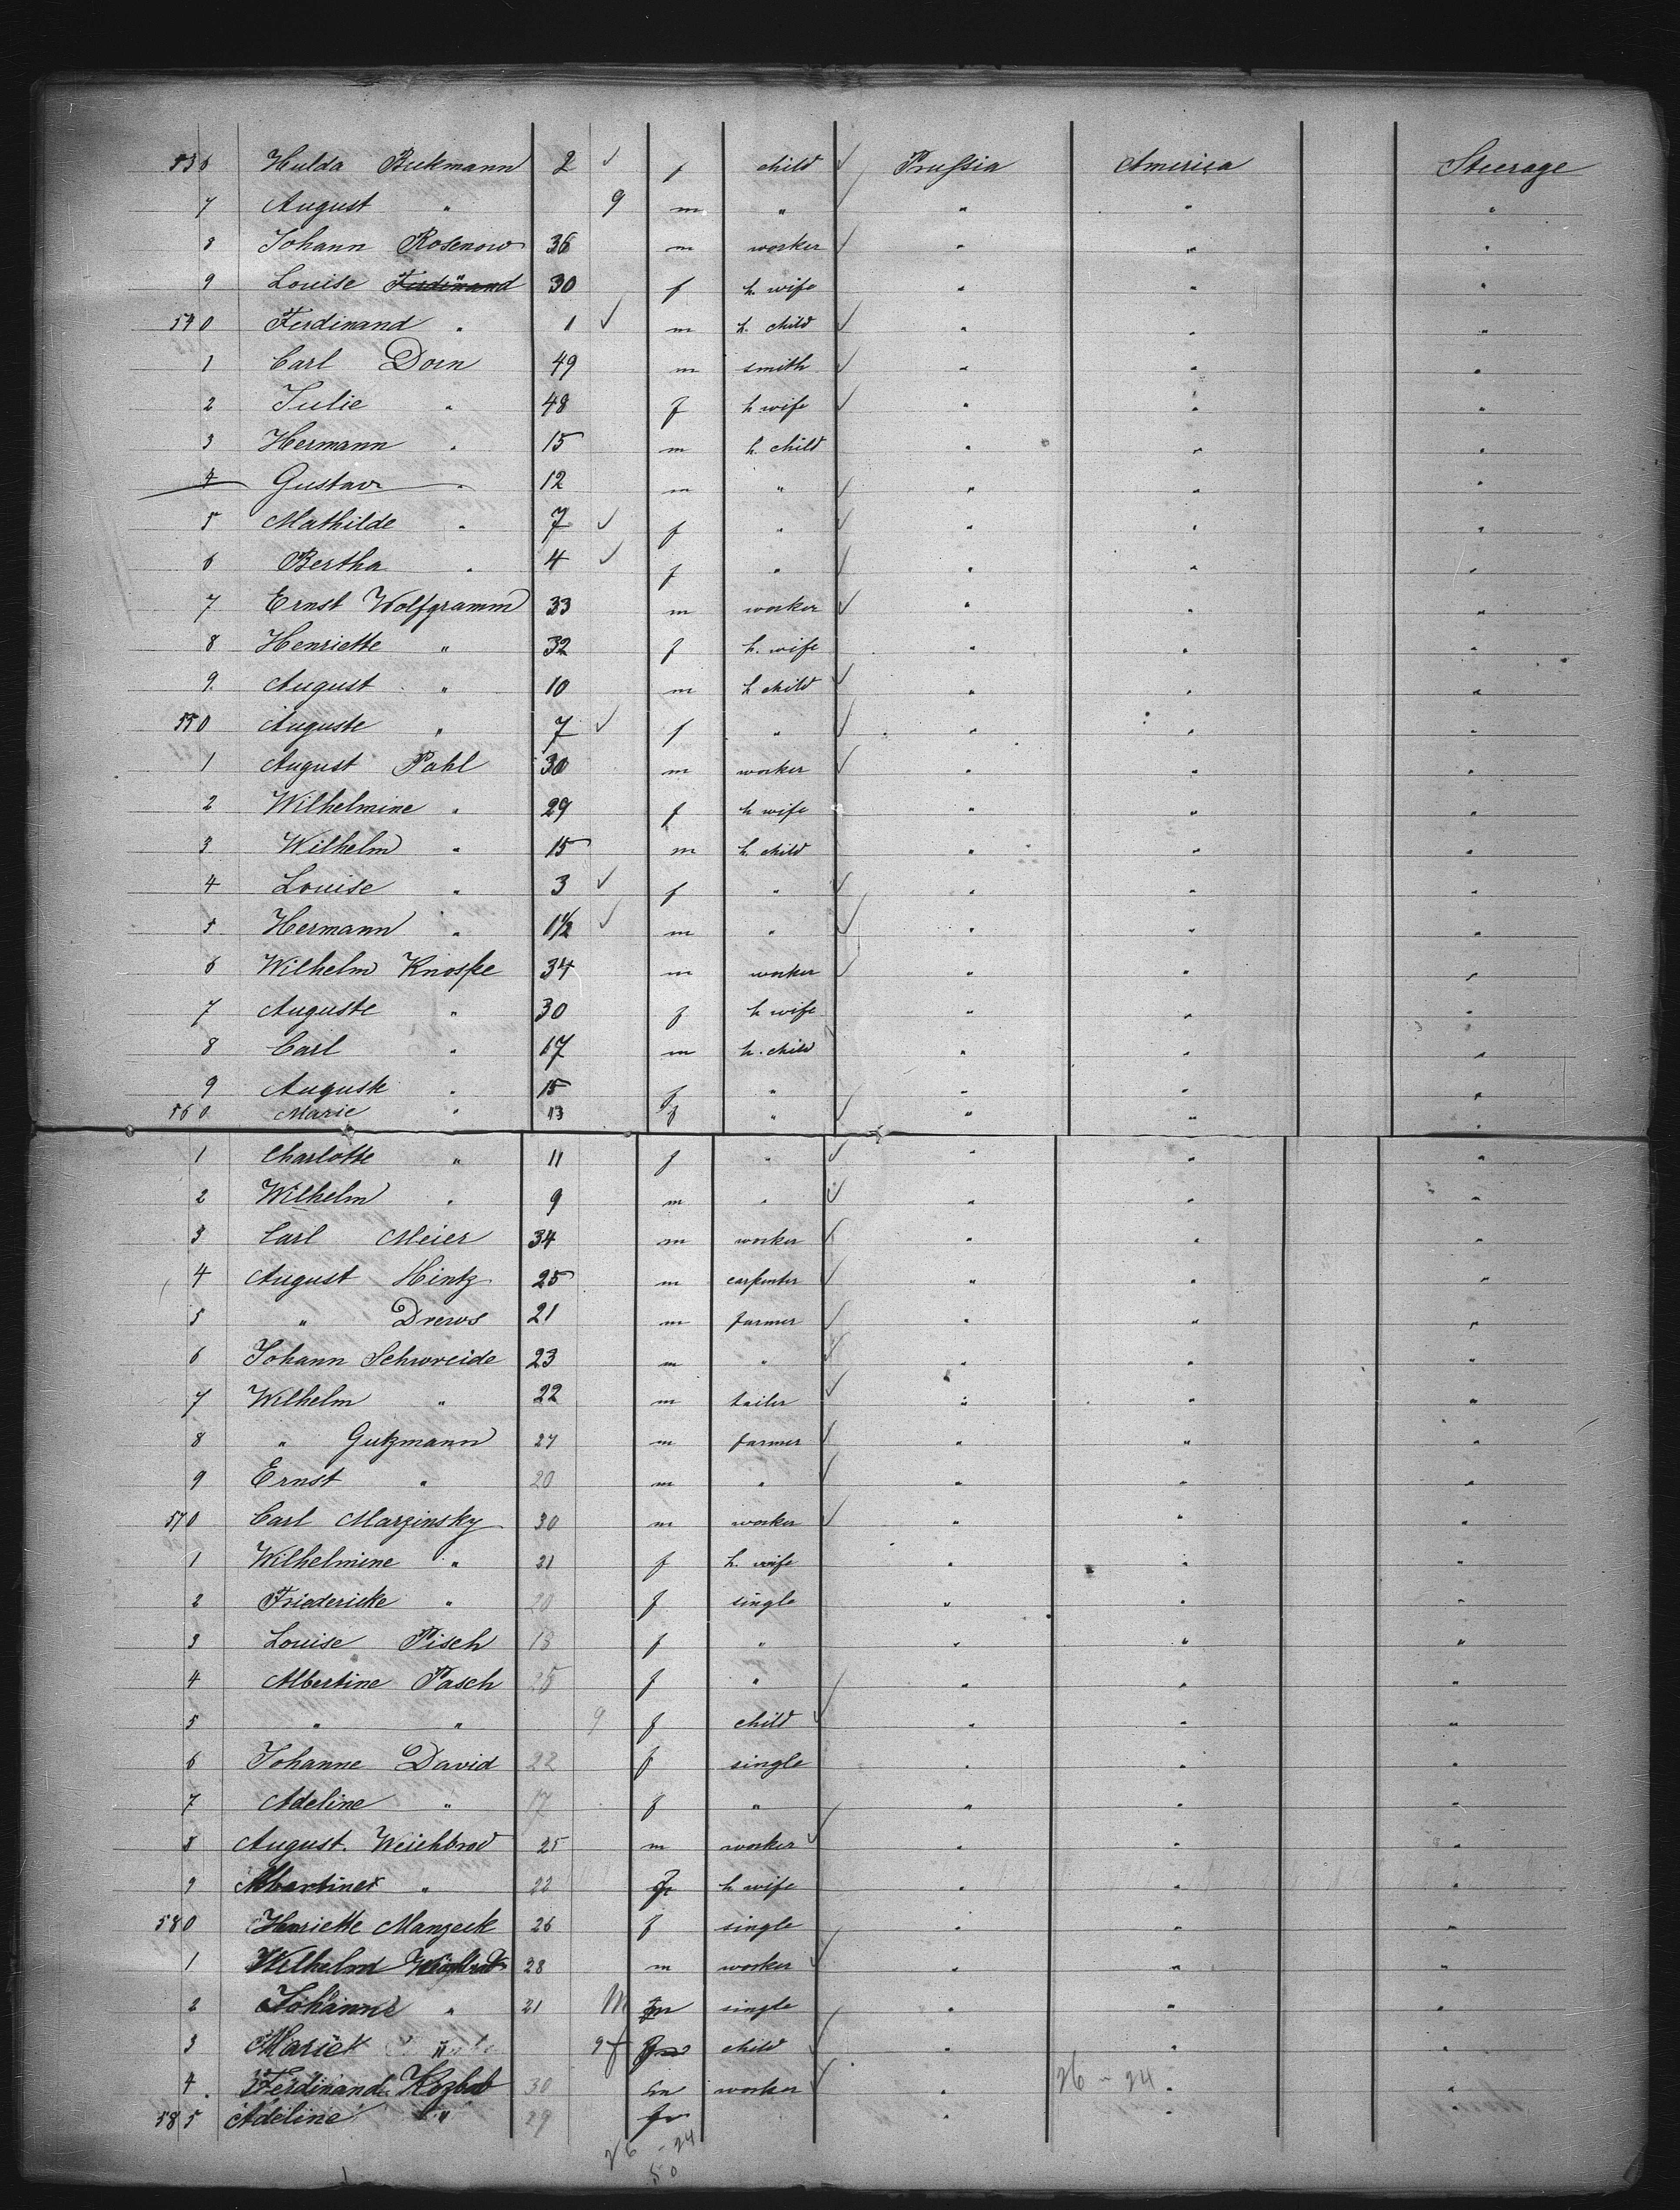 536 Hulda Beckmann 2 ✓ f child ✓ Prussia America Steerage
7 August " 9 m " ✓ " " "
8 Johann Rosenow 36 m worker ✓ " " "
9 Louise Ferdinand 30 f h. wife " " "
540 Ferdinand " 1 ✓ m h. child ✓ " " "
1 Carl Dorn 49 m smith ✓ " " "
2 Julie " 48 f h wife ✓ " " "
3 Hermann " 15 m h. child " " "
4 Gustav " 12 m " ✓ " " "
5 Mathilde " 7 ✓ f " ✓ " " "
6 Bertha " 4 ✓ f " ✓ " " "
7 Ernst Wolfgramm 33 m worker ✓ " " "
8 Henriette " 32 f h. wife " " "
9. August " 10 m h child ✓ " " "
550 Auguste " 7 ✓ f " ✓ " " "
1 August Pahl 30 m worker ✓ " " "
2 Wilhelmine " 29 f h wife " " "
3 Wilhelm " 15 m h. child " " "
4 Louise " 3 ✓ f " ✓ " " "
5 Hermann " 1½ ✓ m " ✓ " " "
6 Wilhelm Knospe 34 m worker ✓ " " "
7 Auguste " 30 f h wife " " "
8 Carl " 17 m h. child " " "
9 Auguste " 15 f " " " "
560 Marie " 13 f " ✓ " " "
1 Charlotte " 11 f " ✓ " " "
2 Wilhelm " 9 m " ✓ " " "
3 Carl Meier 34 m worker ✓ " " "
4 August Hintz 25 m carpenter ✓ " " "
5 " Drews 21 m farmer ✓ " " "
6 Johann Schwreide 23 m " ✓ " " "
7 Wilhelm " 22 m tailer ✓ " " "
8 " Gutzmann 27 m farmer ✓ " " "
9 Ernst " 20 m " ✓ " " "
570 Carl Marzinsky 30 m worker ✓ " " "
1 Wilhelmine " 21 f h. wife " " "
2 Friedericke " 20 f single " " "
3 Louise Pisch 18 f " " " "
4 Albertine Pasch 25 f " " " "
5 " " 9 f child ✓ " " "
6 Johanne David 22 f single " " "
7 Adeline " 17 f " " " "
8 August. Weichbrod 25 m worker ✓ " " "
9 Albertine " 22 f h wife " " "
580 Henriette Manzeck 26 f single " " "
1 Wilhelm 28 m worker ✓ " " "
2 Johann " 21 m single " " "
3 Marie " 9 f child ✓ " " "
4 Ferdinand 30 m worker ✓ " 26 - 24 " "
585 Adeline " 29 f " " "
26 - 24
50